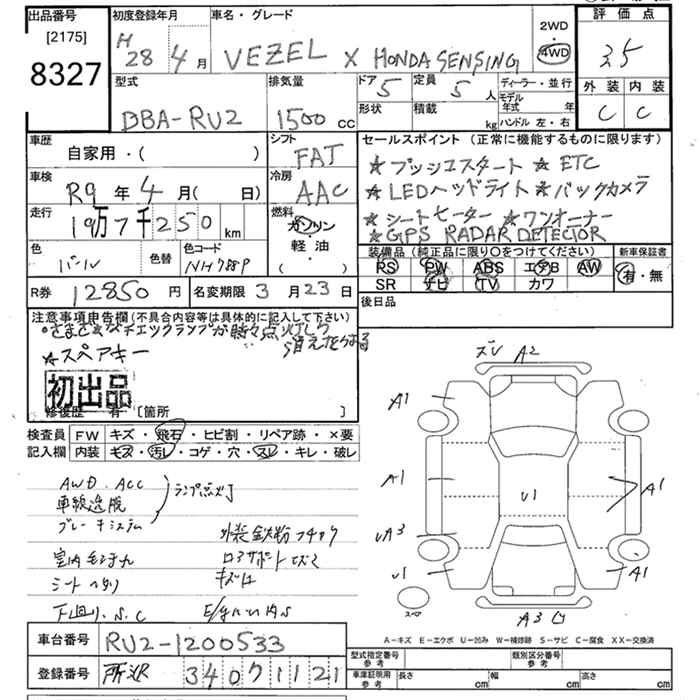 出品番号
[2175]
8327
初度登録年月
H
28 4月
車名・グレード
VEZEL X HONDA SENSING
2WD
4WD
評価点
3.5
外装 内装
C C
型式
DBA-RU2
排気量
1500 cc
ドア 5
定員 5 人
形状
積載 kg
ディーラー・並行
モデル年式 年
ハンドル 左・右
車歴
自家用・( )
シフト
FAT
セールスポイント (正常に機能するものに限ります)
☆プッシュスタート ☆ETC
☆LEDヘッドライト ☆バックカメラ
☆シートヒーター ☆ワンオーナー
☆GPS RADAR DETECTOR
車検
R9年4月( 日)
冷房
AAC
走行
19万7千250km
燃料
ガソリン
軽油・
( )
色
パール
色替
色コード
NH788P
装備品 (純正品に限り○をつけてください)
RS PW ABS エアB AW
SR ナビ TV カワ
新車保証書
有・無
R券 12850円
名変期限 3月23日
後日品
注意事項申告欄(不具合内容等は具体的に記入して下さい)
さまざまなチェックランプが時々点灯したり
消えたりする
☆スペアキー
初出品
修復歴 有 [箇所 ]
検査員
記入欄
FW キズ・飛石・ヒビ割・リペア跡・×要
内装 キズ・汚レ・コゲ・穴・スレ・キレ・破レ
AWD. ACC
車線逸脱
ブレーキシステム
ランプ点灯
外装鉄粉
シート
キズ
下回り.S.C
ズレ A2
A1
A1
A1
U1
UA3
U1
A1
A3
スペア
A−キズ E−エクボ U−凹み W−補修跡 S−サビ C−腐食 XX−交換済
車台番号 RU2-1200533
登録番号 所沢 340 ワ 1121
型式指定番号
参考
類別区分番号
参考
車庫証明用
参考
長さ cm 幅 cm 高さ cm